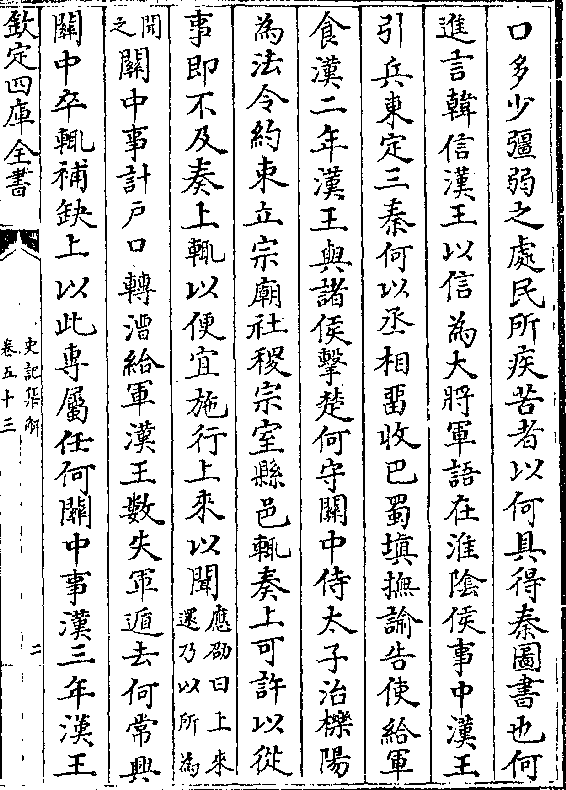 口多少彊弱之處民所疾苦者以何具得秦圖書也何
進言韓信漢王以信為大將軍語在淮陰侯事中漢王
引兵東定三秦何以丞相留收巴蜀填撫諭告使給軍
食漢二年漢王與諸侯擊楚何守關中侍太子治櫟陽
為法令約束立宗廟社稷宗室縣邑輒奏上可許以從
事即不及奏上輒以便宜施行上來以聞應劭曰上來還乃以所為
聞之關中事計戶口轉漕給軍漢王數失軍遁去何常興
關中卒輒補缺上以此專屬任何關中事漢三年漢王
欽定四庫全書
史記集解
卷五十三
二